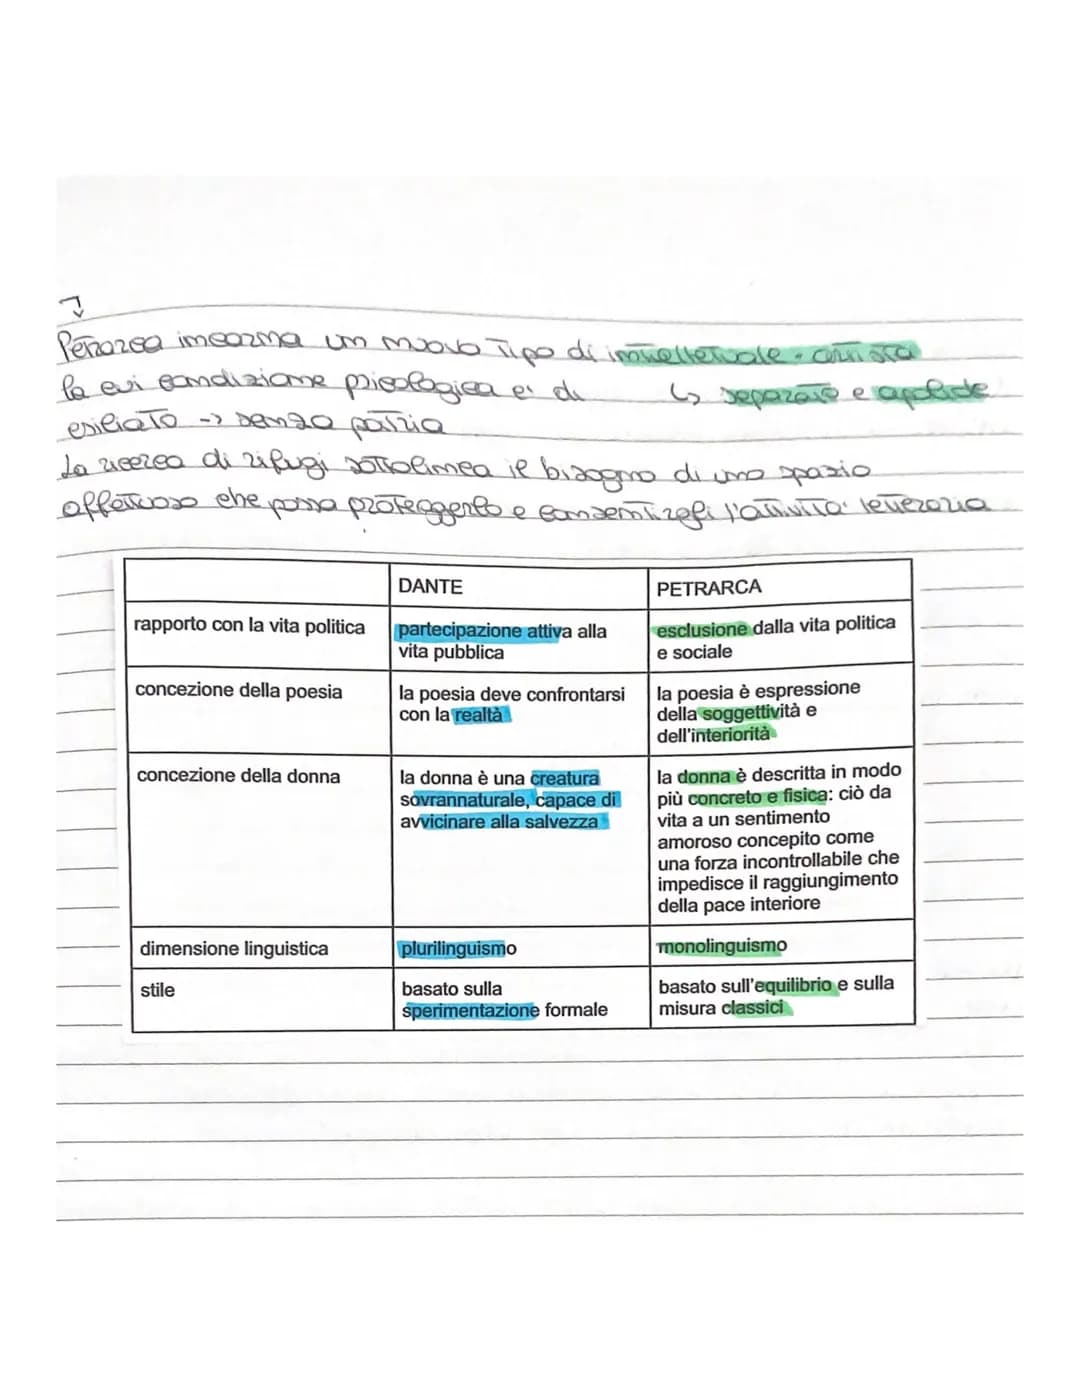 Petrarca incarna un nuovo tipo di intellettuale - artista
la cui condizione psicologica e' di ↳ separato e apolide
esiliato -> senza patria
La ricerca di rifugi sottolinea il bisogno di uno spazio
affettuoso che possa proteggerlo e consentirgli l'attivita' letteraria
DANTE PETRARCA
rapporto con la vita politica
partecipazione attiva alla
vita pubblica
esclusione dalla vita politica
e sociale
concezione della poesia
la poesia deve confrontarsi
con la realtà
la poesia è espressione
della soggettività e
dell'interiorità
concezione della donna
la donna è una creatura
sovrannaturale, capace di
avvicinare alla salvezza
la donna è descritta in modo
più concreto e fisica: ciò da
vita a un sentimento
amoroso concepito come
una forza incontrollabile che
impedisce il raggiungimento
della pace interiore
dimensione linguistica
plurilinguismo
monolinguismo
stile
basato sulla
sperimentazione formale
basato sull'equilibrio e sulla
misura classici